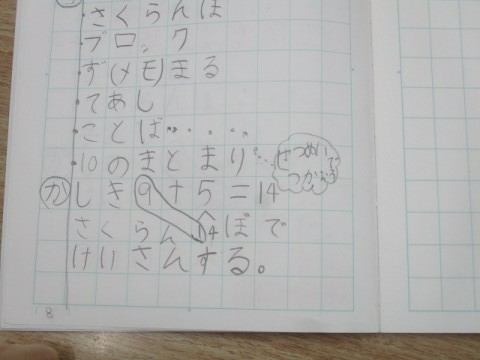 ・さくらんぼ
・ブロック
・ず(メモ)まる
・てあし
・ことば……
・10のまとまり…
せつめいで
つかおう
か しき 9+5=14
さくらんぼで
14
けいさんする。
8